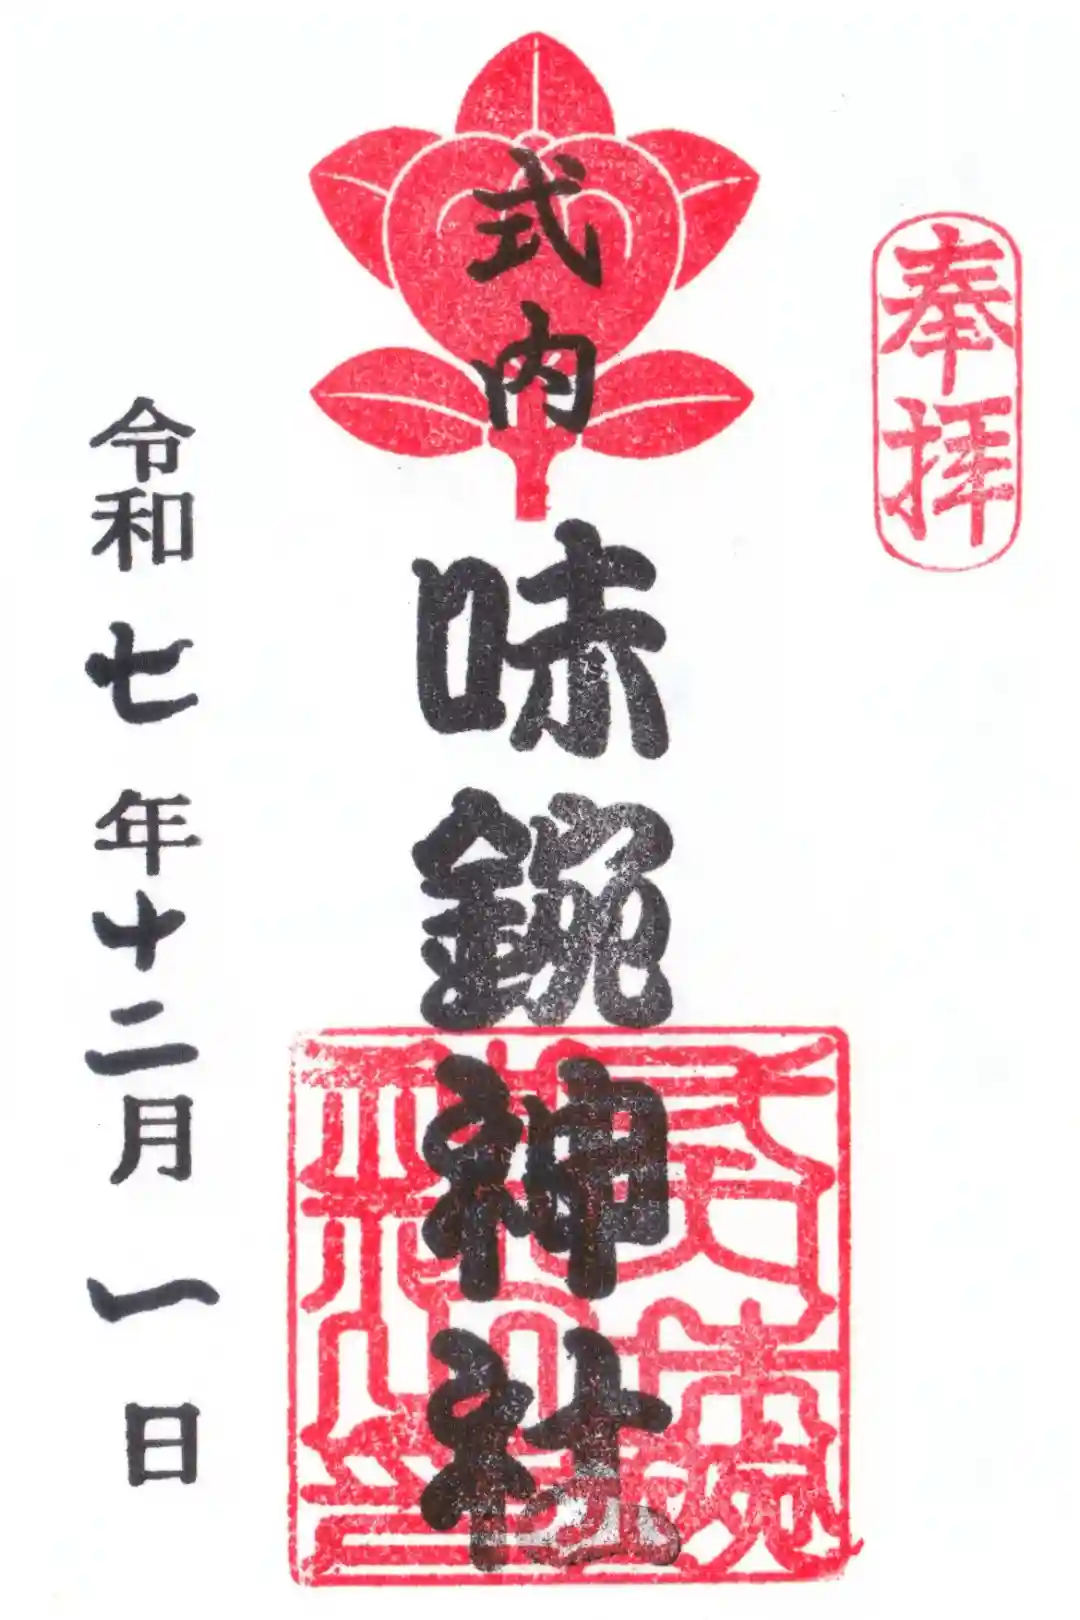 奉拝
式内
味鋺神社
令和七年十二月一日